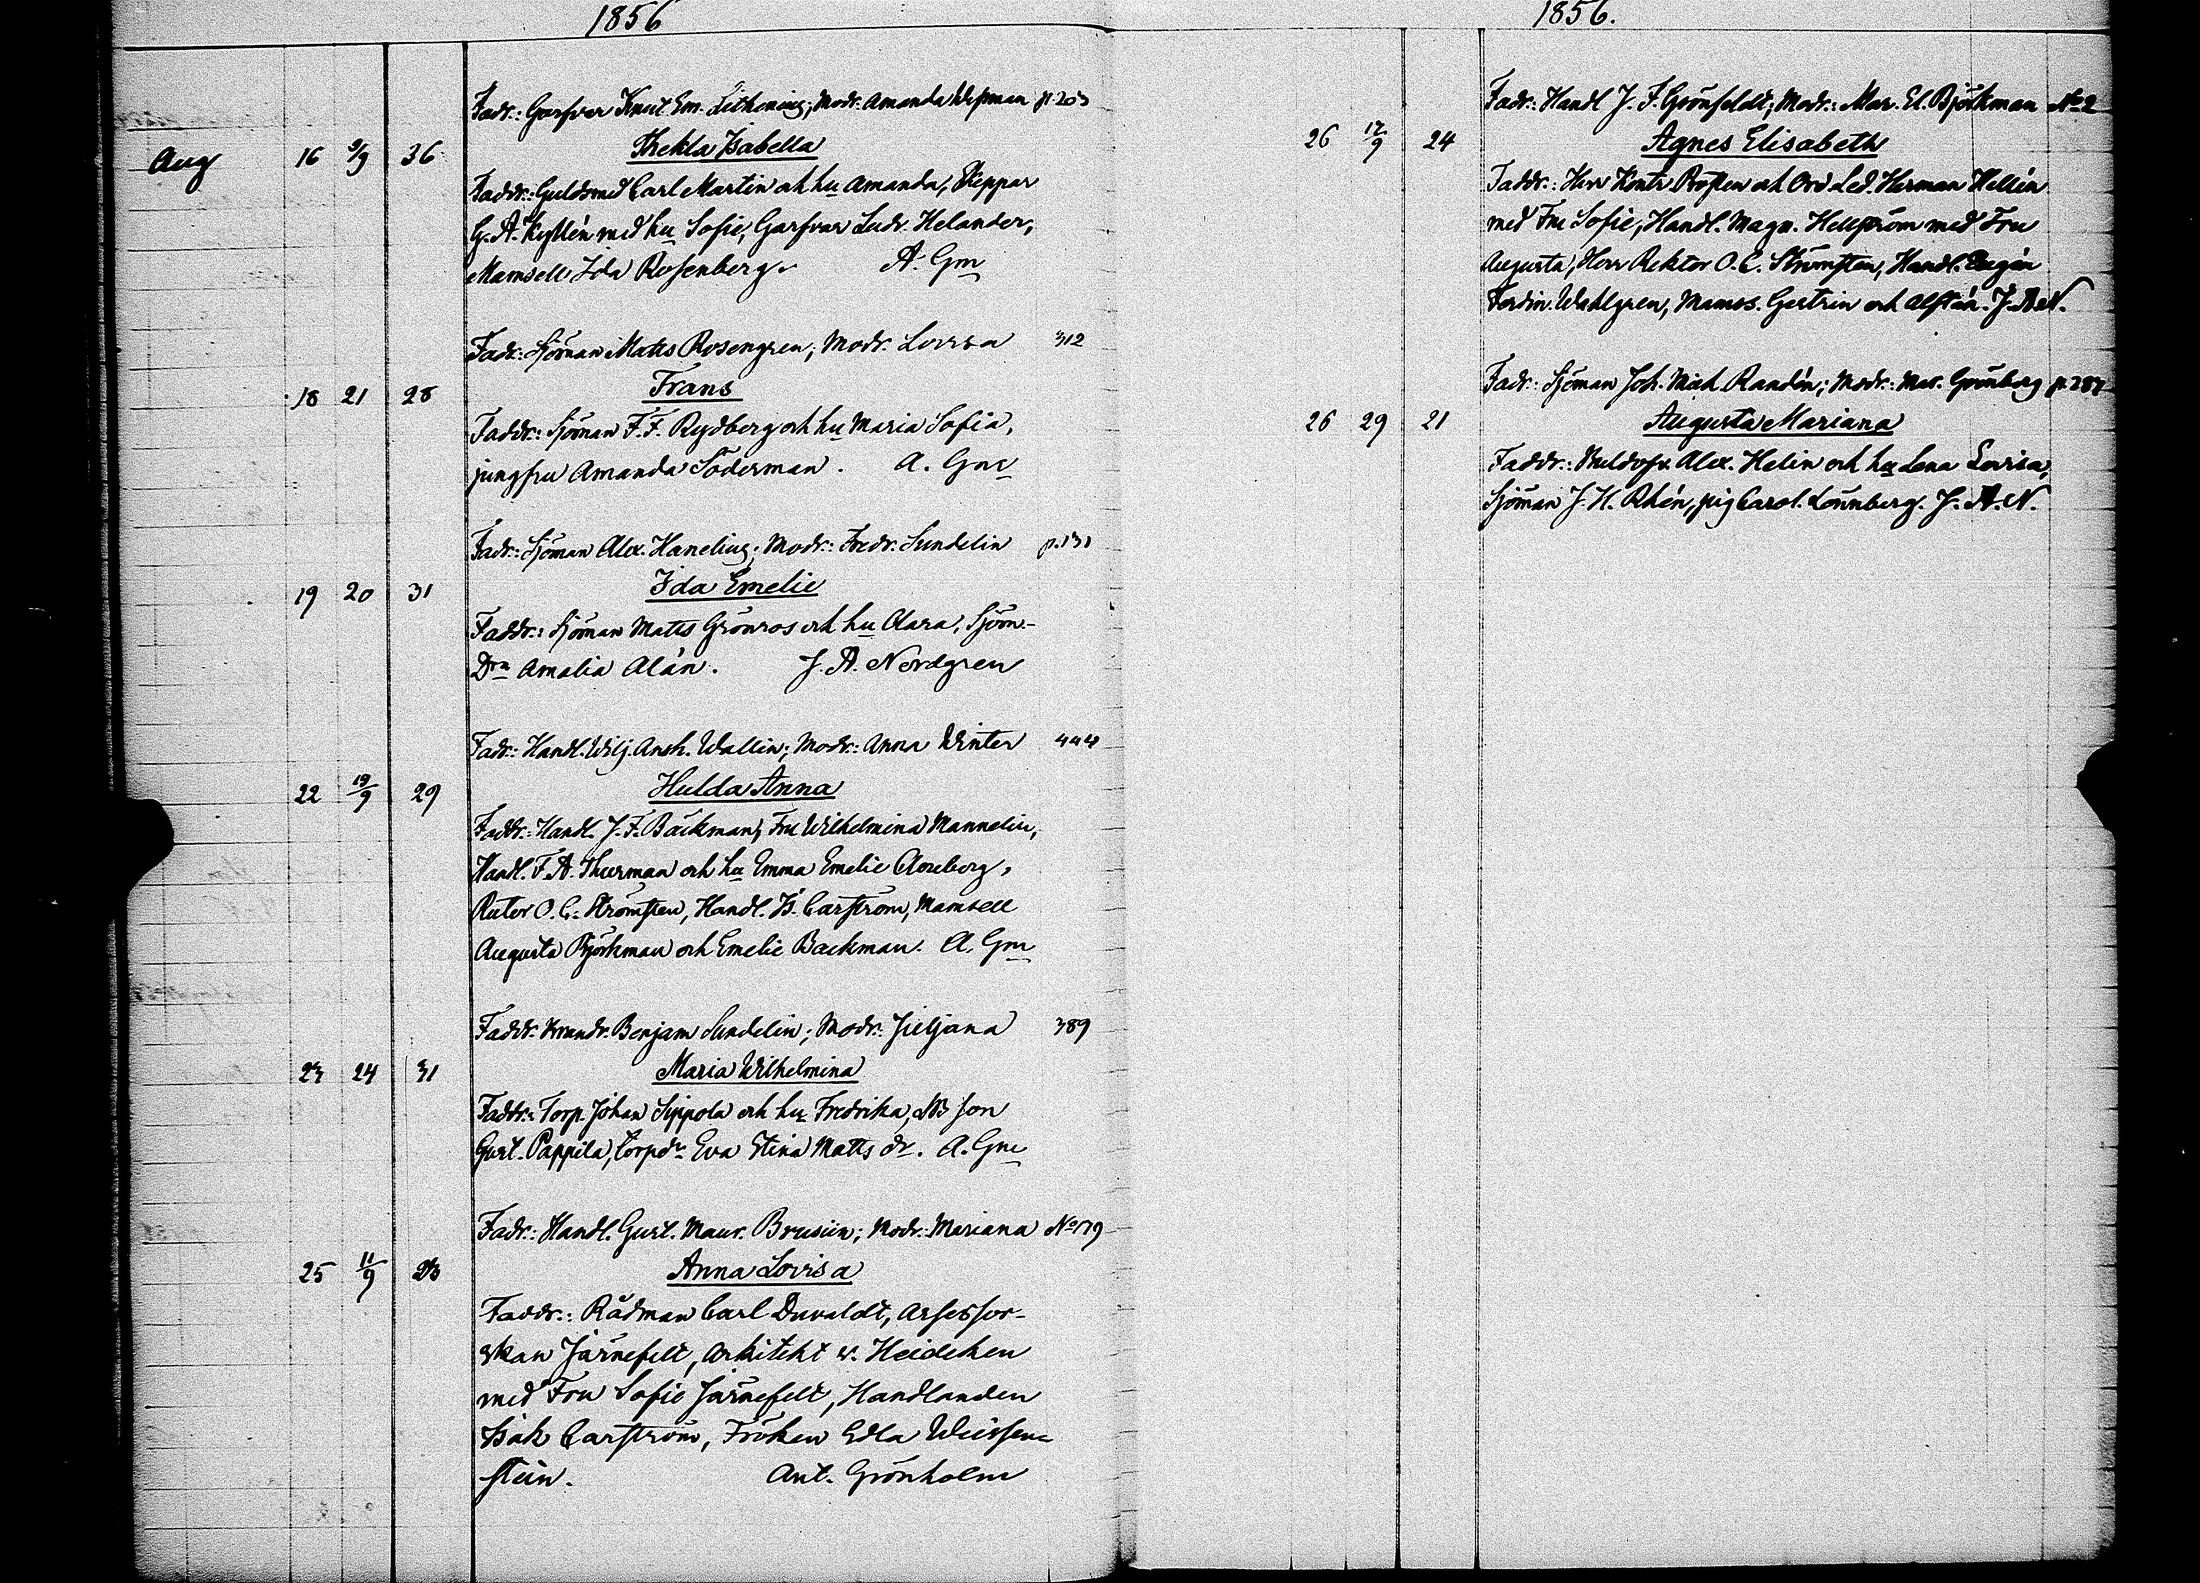 1856
Fadr: Garfver Knut Em. Lithenius; Modr. Amanda Wefman p. 203
Aug 16 9/9 36 Thekla Isabella
Faddr: Guldsmed Carl Martin och hu Amanda, Skeppar
G. A. Kyllén med hu Sofie, Garfvar Ludv. Helander,
Mamsell Ida Rosenberg. A. Gm
Fadr: Sjöman Matts Rosengren; Modr. Lovisa 312
18 21 28 Frans
Faddr: Sjöman F. F. Rydberg och hu Maria Sofia,
jungfru Amanda Söderman. A. Gm
Fadr: Sjöman Alex. Hanelius; Modr: Fredr. Sundelin p. 131
19 20 31 Ida Emelie
Faddr: Sjöman Matts Grönros och hu Clara, Sjöm-
Drn Amalia Alén. J. A. Nordgren
Fadr: Handl. Wilj. Ansh. Wallin; Modr: Anna Winter 444
22 19/9 29 Hulda Anna
Faddr: Handl. J. F. Bäckman, Fru Wilhelmina Mannelin,
Handl. F. A. Thurman och hu Emma Emelie Cloreberg,
Rector O. C. Strömsten, Handl. Is. Carström, Mamsell
Augusta Björkman och Emelie Backman. A. Gm
Faddr. Benjam Sundelin; Modr: Juljana 389
23 24 31 Maria Wilhelmina
Faddr: Torp. Johan Sippola och hu Fredrika, son
Gust. Pappila, torpdr Eva Stina Matts dr. A. Gm
Fadr: Handl. Gust. Maur. Brusiin; Modr: Mariana No 179
25 11/9 23 Anna Lovisa
Faddr: Rådman Carl Duvaldt, Assessor-
skan Järnefelt, Arkitekt v. Heideken
med Fru Sofie Järnefelt, Handlanden
Isak Carström, Fröken Edla Weissen-
stein. Ant. Grönholm
1856.
Fadr: Handl J. F. Grönfeldt; Modr: Mar. El. Björkman No 2
26 17/9 24 Agnes Elisabeth
Faddr: Herr Kontr Rosten och Ord Led. Herman Hellén
med Fru Sofie, Handl. Magn. Hellström med Fru
Augusta, Herr Rektor O. C. Strömsten, Handl. Eugén
Ferdin. Wahlgren, Mams. Gestrin och Alftán. J. A. N.
Fadr: Sjöman Joh. Mich. Randén; Modr: Mar. Grönberg p. 287
26 29 21 Augusta Mariana
Faddr: Alex. Helin och hu Lena Lovisa,
Sjöman J. H. Rhén, pig Carol. Lönnberg. J. A. N.